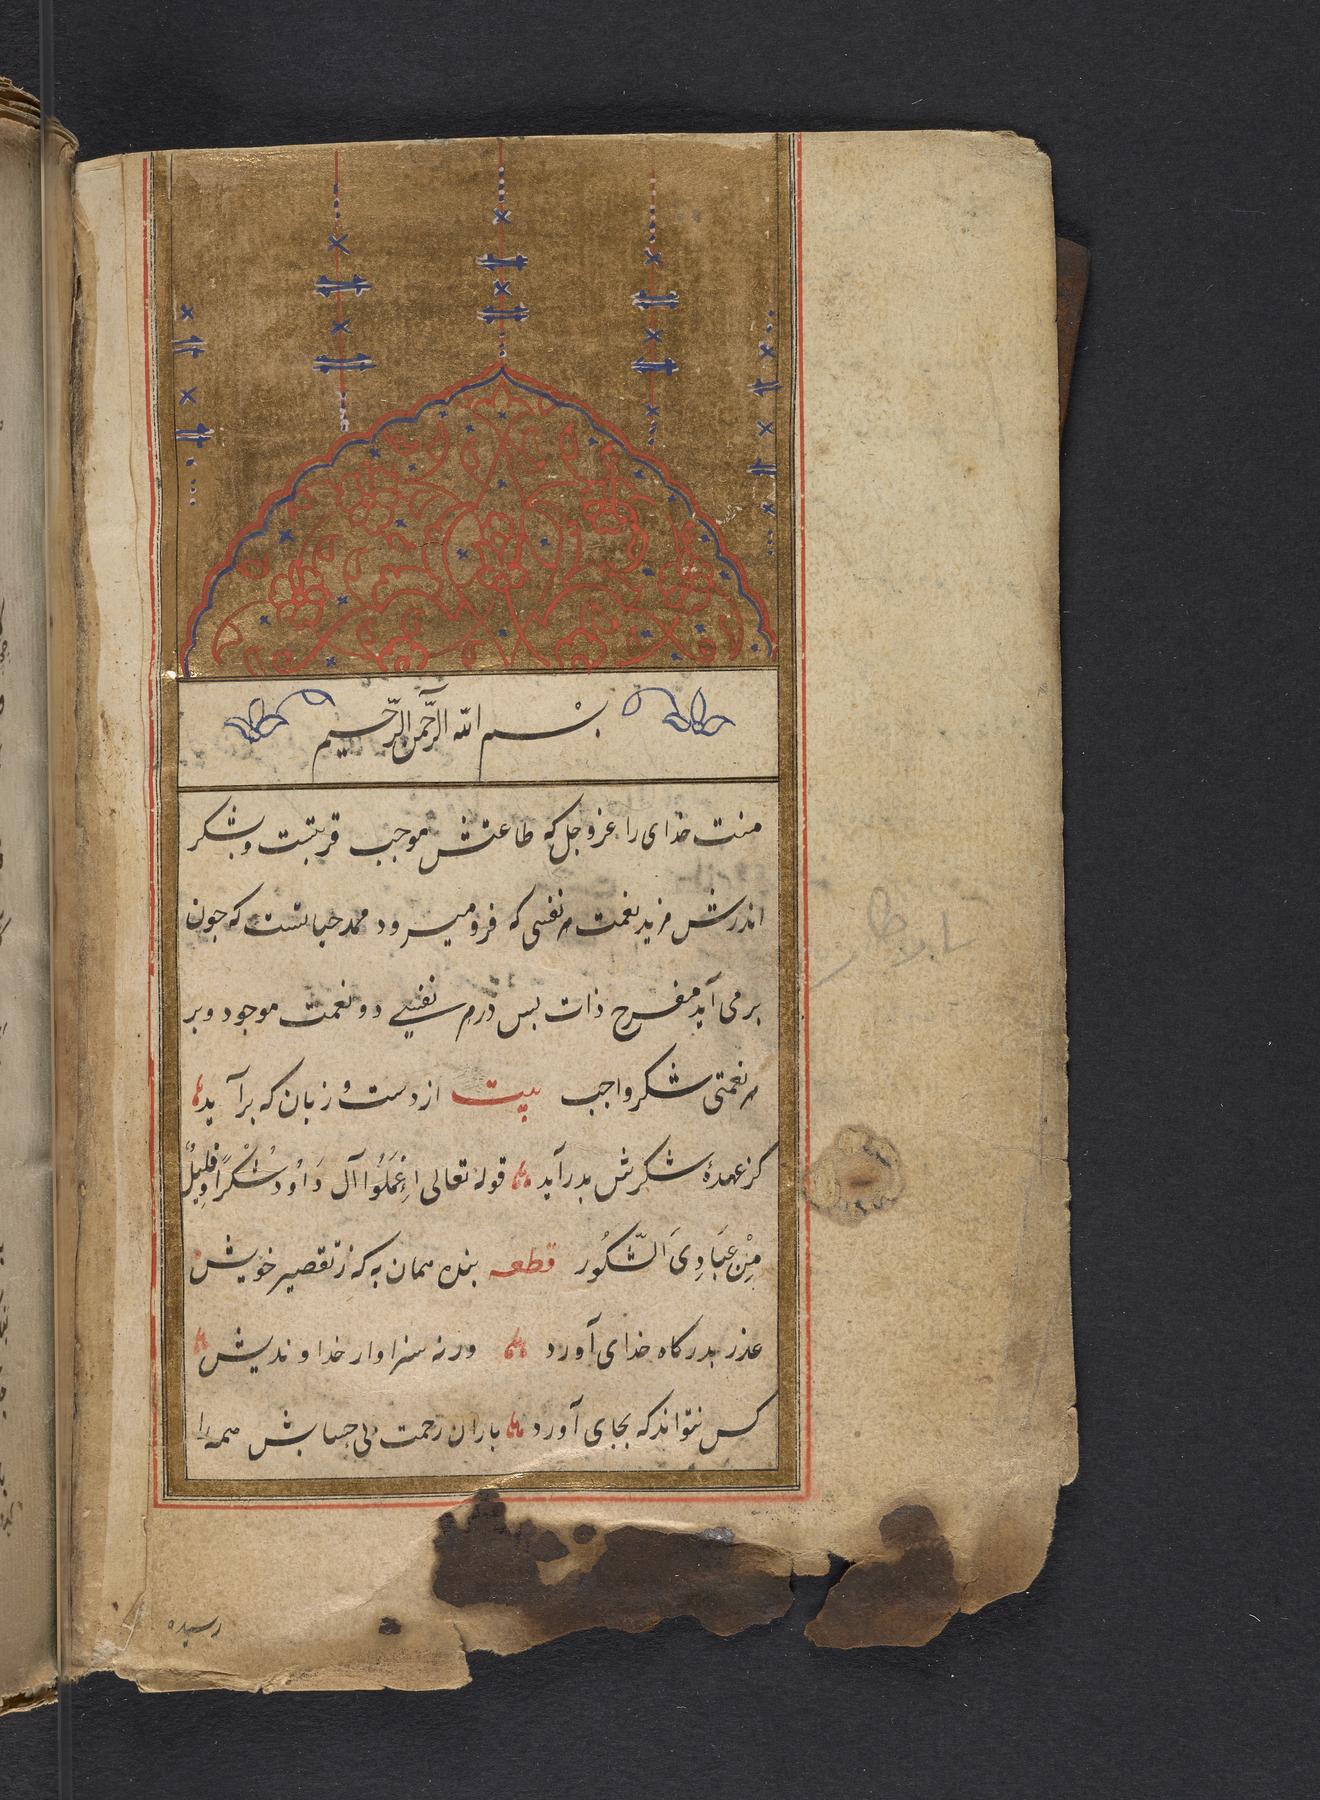 بسم الله الرَّحمن الرَّحیم
منت خدای را عزوجل که طاعتش موجب قربتست و بشکر
اندرش مزید نعمت هر نفسی که فرو میرود ممد حیاتست که جون
برمی آید مفرح ذات بس در هر نفسی دو نعمت موجود و بر
هر نعمتی شکر واجب بیت از دست و زبان که برآید
کز عهدهٔ شکرش بدر آید قوله تعالی اِعْمَلُوا آل دَاوُدَ شُکْرًا وَقَلِیلٌ
مِنْ عِبَادِیَ الشَّکُور قطعه بنده همان به که ز تقصیر خویش
عذر بدرکاه خدای آورد ورنه سزاوار خداوندیش
کس نتواند که بجای آورد باران رحمت بی حسابش همه را
رسیده